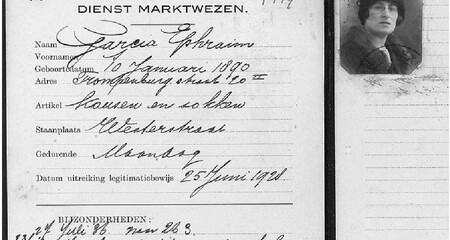 DIENST MARKTWEZEN.
Naam Garcia Ephraim
Voornamen
Geboortedatum 10 Januari 1890
Adres Trompenburg straat 90 II
Artikel kousen en sokken
Staanplaats Westerstraat
Gedurende Maandag
Datum uitreiking legitimatiebewijs 25 Juni 1928
BIJZONDERHEDEN:
27 Juli 36